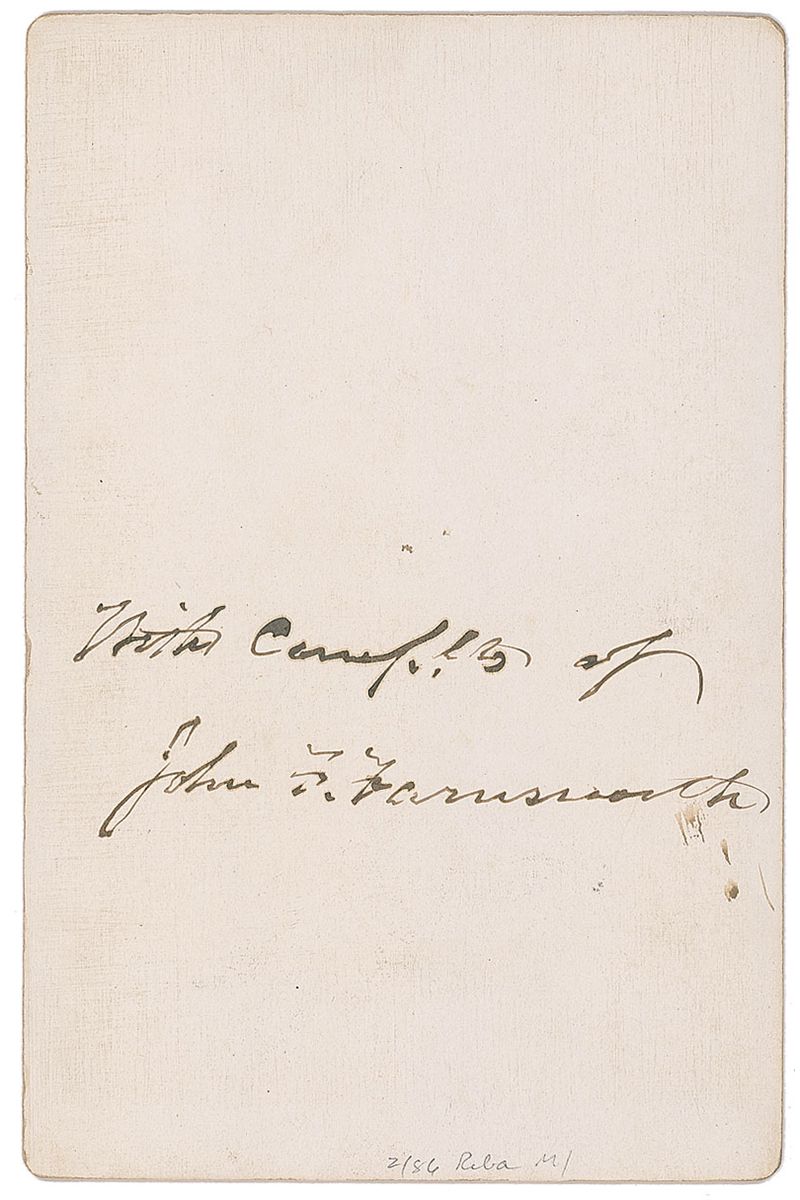 With Compl.ts of
John F. Farnsworth
2/86 Reba M/